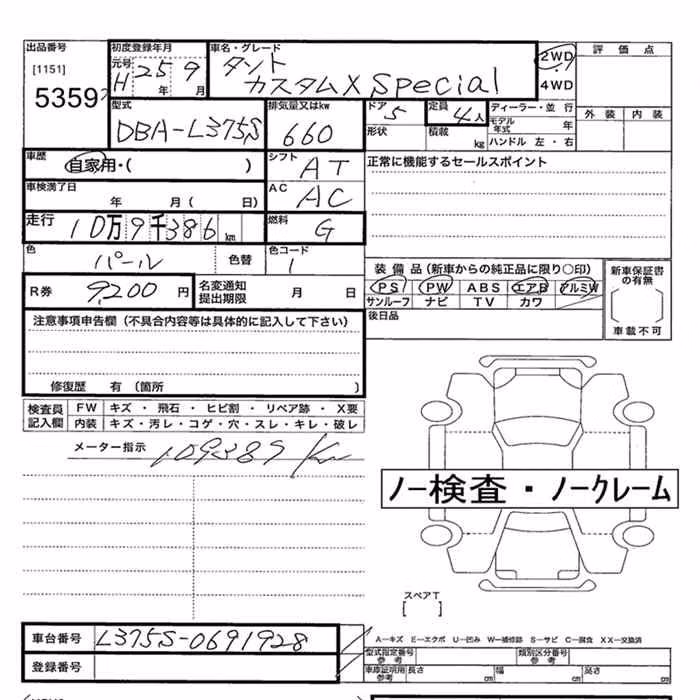 出品番号 初度登録年月 車名・グレード 2WD 評価点
[1151] 元号 H 25年 9月 タント 4WD
5359 カスタムX Special
型式 排気量又はkw ドア 5 定員 4人 ディーラー・並行 外装 内装
DBA-L375S 660 形状 積載 kg モデル年式 年
ハンドル 左・右
車歴 自家用・( ) シフト AT 正常に機能するセールスポイント
車検満了日 年 月( 日) AC AC
走行 10万9千386km 燃料 G
色 パール 色替 色コード 1
装備品(新車からの純正品に限り○印) 新車保証書の有無
R券 9,200円 名変通知提出期限 月 日 PS PW ABS エアB アルミW
サンルーフ ナビ TV カワ
注意事項申告欄(不具合内容等は具体的に記入して下さい) 後日品 車載不可
修復歴 有(箇所 )
検査員 FW キズ・飛石・ヒビ割・リペア跡・X要
記入欄 内装 キズ・汚レ・コゲ・穴・スレ・キレ・破レ
メーター指示 109389 Km
ノー検査・ノークレーム
スペアT
[ ]
車台番号 L375S-0691928 A―キズ E―エクボ U―凹み W―補修跡 S―サビ C―腐食 XX―交換済
型式指定番号 参考 類別区分番号 参考
登録番号 車庫証明用参考 長さ cm 幅 cm 高さ cm